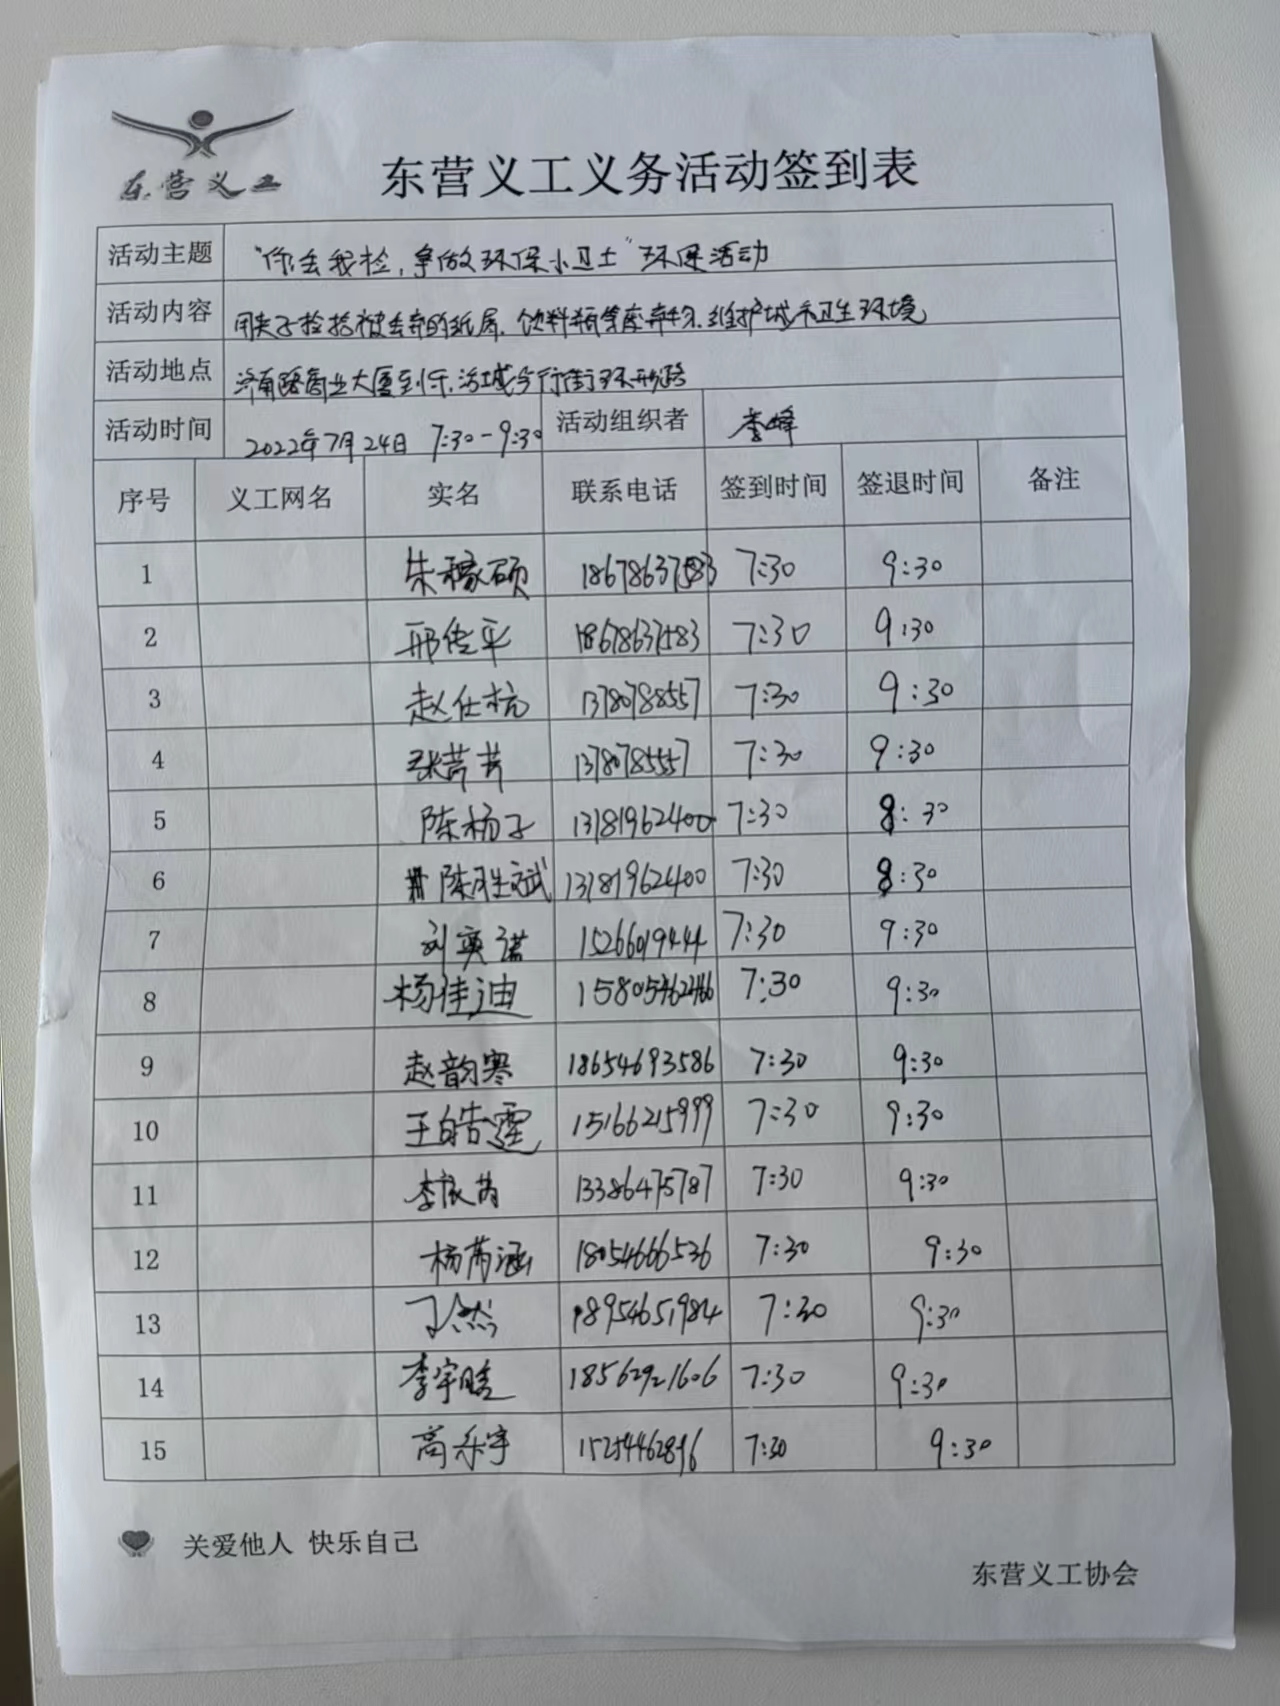 东营义工
东营义工义务活动签到表
活动主题 "你丢我捡,争做环保小卫士"环保活动
活动内容 用夹子捡拾被丢弃的纸屑、饮料瓶等废弃物,维护城市卫生环境
活动地点 济南路商业大厦到乐活城步行街环形路
活动时间 2022年7月24日 7:30-9:30 活动组织者 李峰
序号 义工网名 实名 联系电话 签到时间 签退时间 备注
1 朱稼硕 18678637583 7:30 9:30
2 邢传平 18678637583 7:30 9:30
3 赵仕杭 13780788557 7:30 9:30
4 张芹芹 1378785557 7:30 9:30
5 陈杨子 13181962400 7:30 8:30
6 陈胜斌 13181962400 7:30 8:30
7 刘奕诺 15266019444 7:30 9:30
8 杨佳迪 15805462466 7:30 9:30
9 赵韵寒 18654693586 7:30 9:30
10 王皓霆 15166215999 7:30 9:30
11 李依芮 13386475787 7:30 9:30
12 杨芮涵 18054666536 7:30 9:30
13 丁然 18954651984 7:30 9:30
14 李宇晗 18562921606 7:30 9:30
15 高乐宇 15254462896 7:30 9:30
关爱他人 快乐自己
东营义工协会